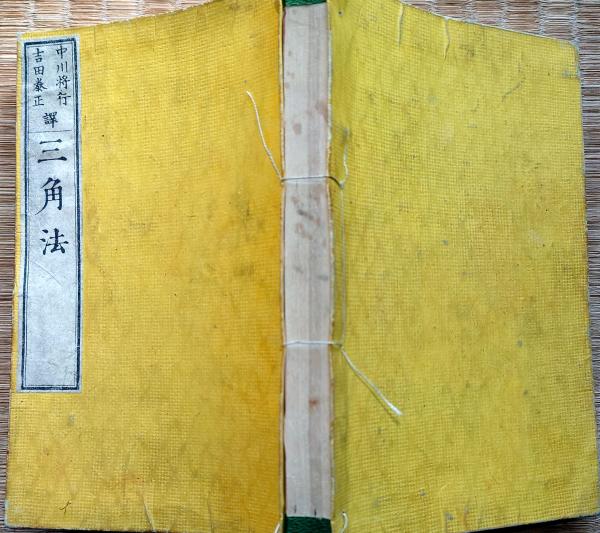 中川将行
吉田泰正
譯
三角法